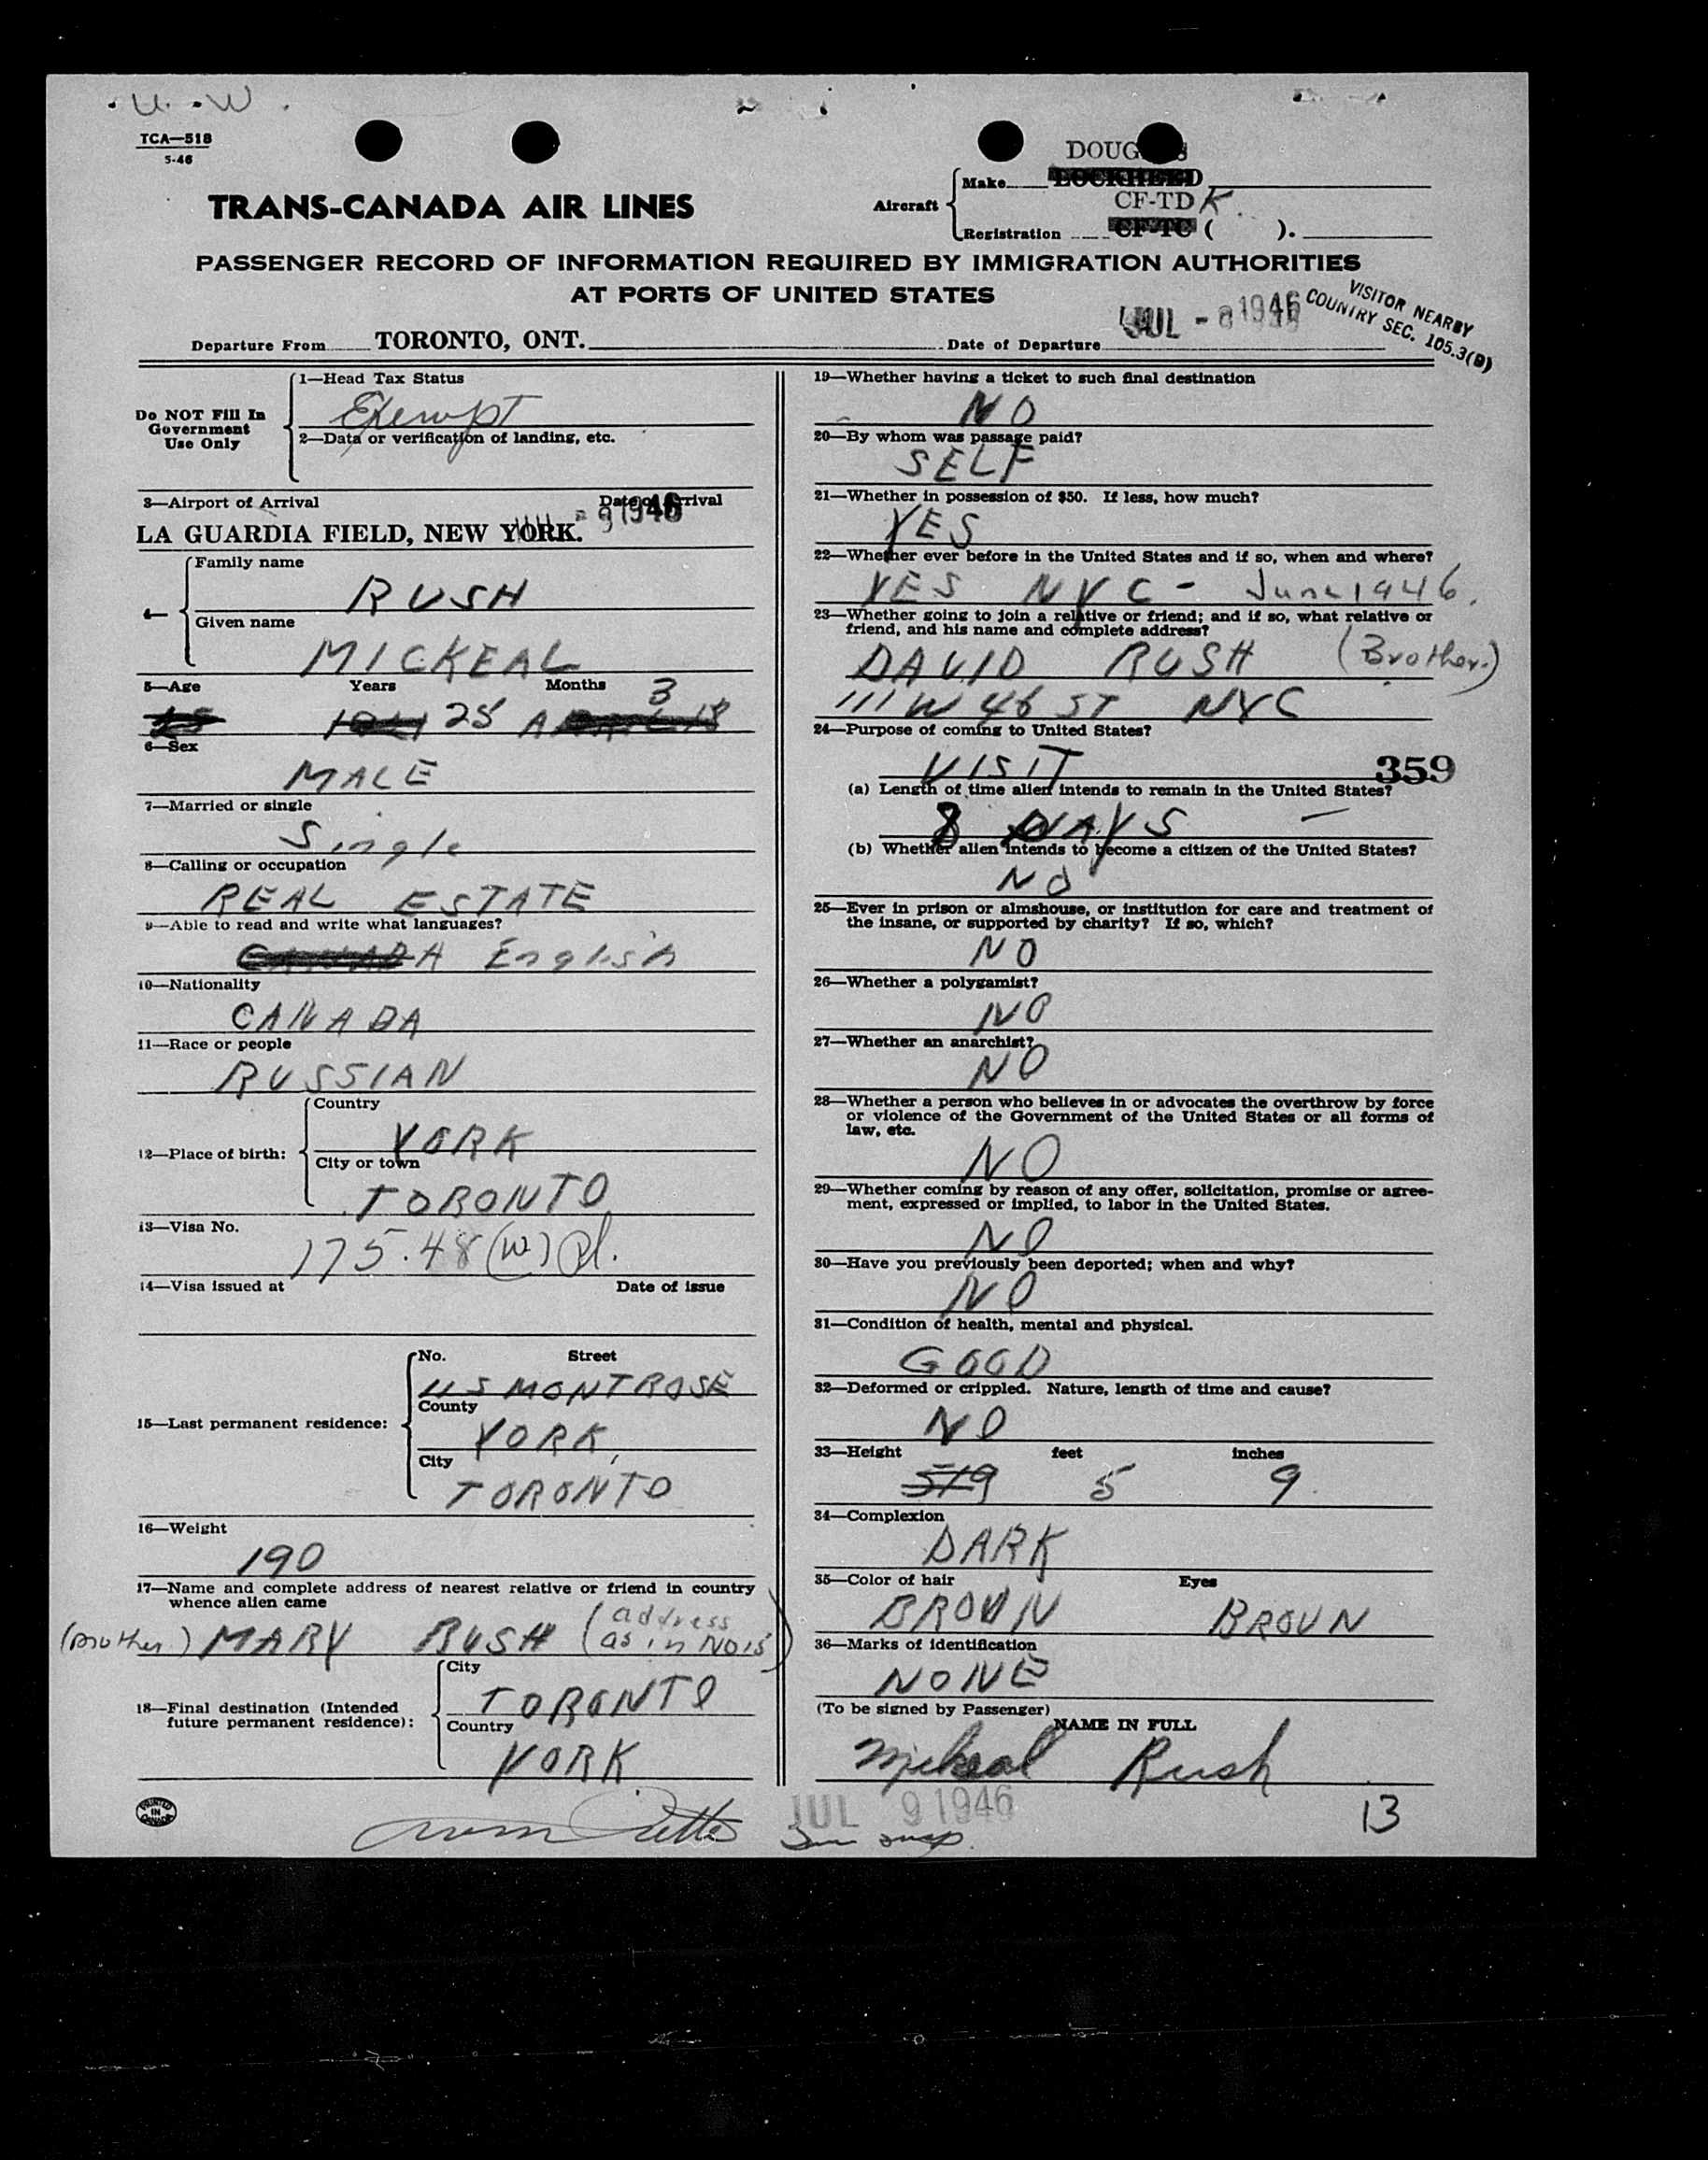 U. W.
TCA—518
5-46
DOUGLAS
Make LOCKHEED
TRANS-CANADA AIR LINES
Aircraft
CF-TDK.
Registration CF-TC ( ).
PASSENGER RECORD OF INFORMATION REQUIRED BY IMMIGRATION AUTHORITIES
AT PORTS OF UNITED STATES
VISITOR NEARBY
COUNTRY SEC. 105.3(B)
Departure From TORONTO, ONT. Date of Departure JUL - 8 1946
Do NOT Fill In
Government
Use Only
1—Head Tax Status
Exempt
2—Data or verification of landing, etc.
3—Airport of Arrival Date of Arrival
LA GUARDIA FIELD, NEW YORK. JUL - 9 1946
4—
Family name
RUSH
Given name
MICKEAL
5—Age Years Months
25 3
6—Sex
MALE
7—Married or single
Single
8—Calling or occupation
REAL ESTATE
9—Able to read and write what languages?
CANADA English
10—Nationality
CANADA
11—Race or people
RUSSIAN
12—Place of birth:
Country
YORK
City or town
TORONTO
13—Visa No.
175.48 (W)
14—Visa issued at Date of issue
15—Last permanent residence:
No. Street
115 MONTROSE
County
YORK,
City
TORONTO
16—Weight
190
17—Name and complete address of nearest relative or friend in country
whence alien came
(Mother) MARY RUSH (address
as in No 15)
18—Final destination (Intended
future permanent residence):
City
TORONTO
Country
YORK
PRINTED
IN
CANADA
19—Whether having a ticket to such final destination
NO
20—By whom was passage paid?
SELF
21—Whether in possession of $50. If less, how much?
YES
22—Whether ever before in the United States and if so, when and where?
YES NYC - June 1946.
23—Whether going to join a relative or friend; and if so, what relative or
friend, and his name and complete address?
DAVID RUSH (Brother.)
111 W 46 ST NYC
24—Purpose of coming to United States?
VISIT
359
(a) Length of time alien intends to remain in the United States?
8 DAYS —
(b) Whether alien intends to become a citizen of the United States?
NO
25—Ever in prison or almshouse, or institution for care and treatment of
the insane, or supported by charity? If so, which?
NO
26—Whether a polygamist?
NO
27—Whether an anarchist?
NO
28—Whether a person who believes in or advocates the overthrow by force
or violence of the Government of the United States or all forms of
law, etc.
NO
29—Whether coming by reason of any offer, solicitation, promise or agree-
ment, expressed or implied, to labor in the United States.
NO
30—Have you previously been deported; when and why?
NO
31—Condition of health, mental and physical.
GOOD
32—Deformed or crippled. Nature, length of time and cause?
NO
33—Height feet inches
519 5 9
34—Complexion
DARK
35—Color of hair Eyes
BROWN BROWN
36—Marks of identification
NONE
(To be signed by Passenger)
NAME IN FULL
Mickeal Rush
JUL 9 1946
13